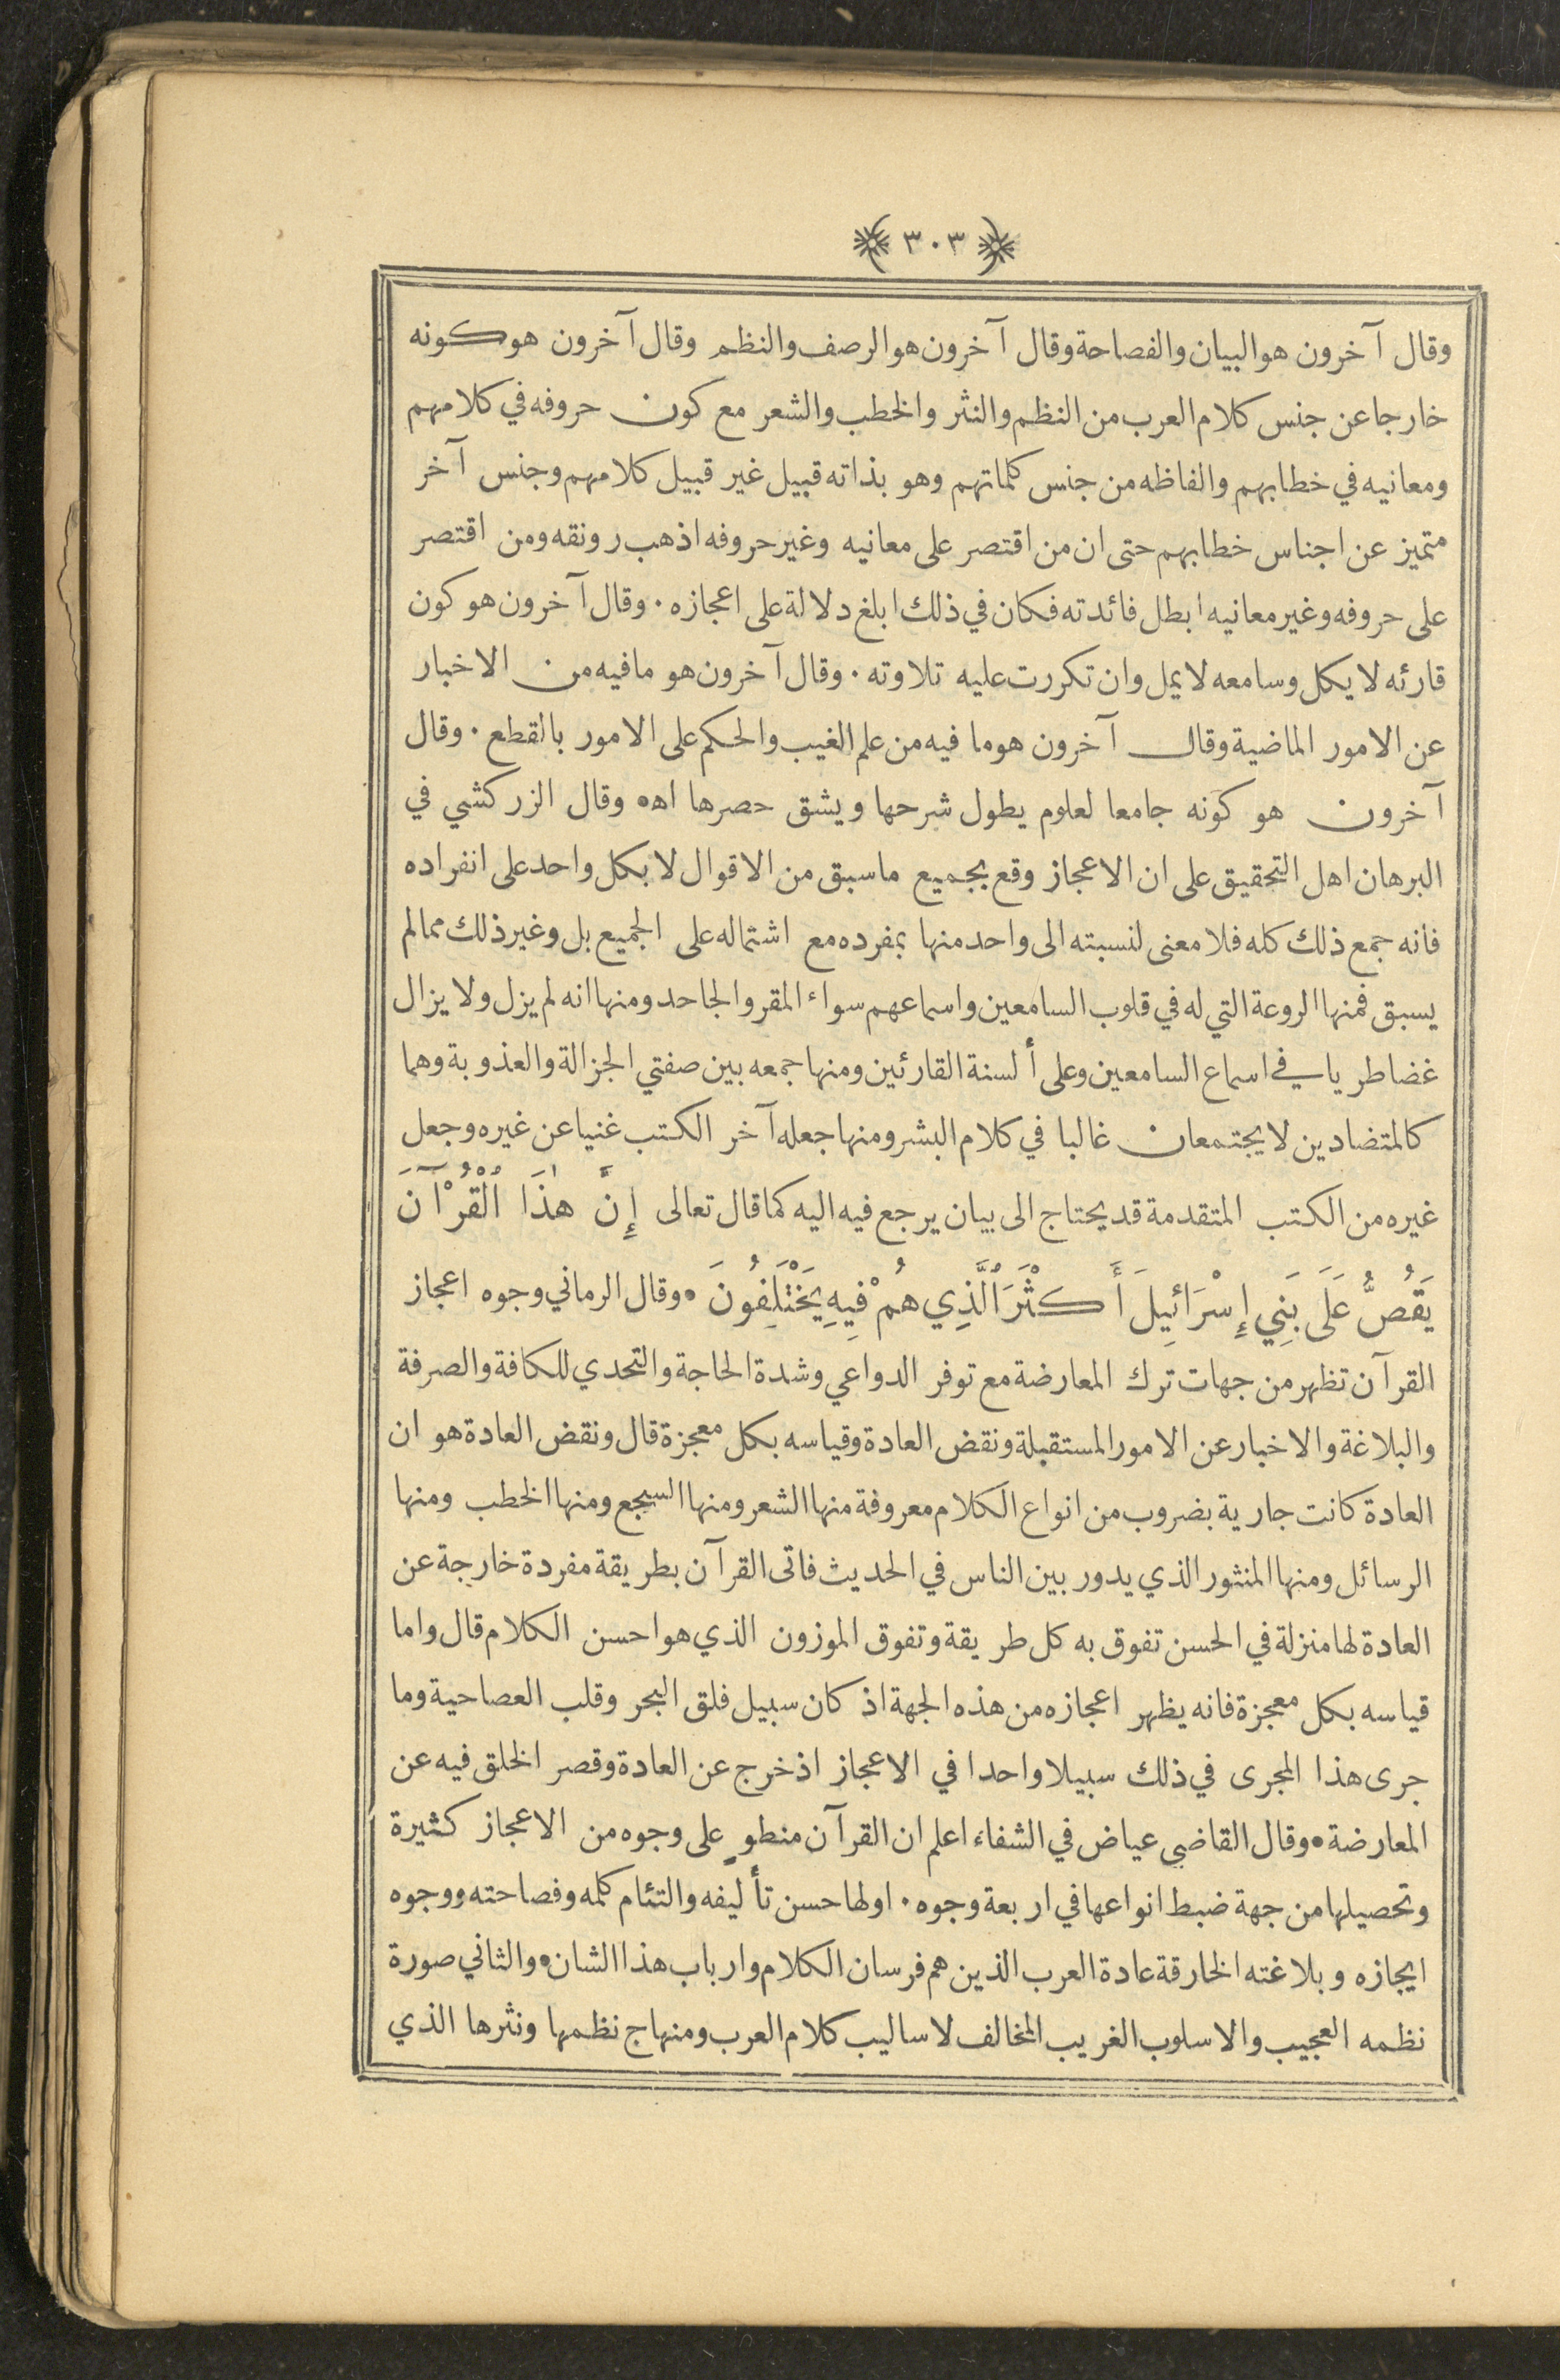 ٣٠٣
وقال آخرون هو البيان والفصاحة وقال آخرون هو الرصف والنظم وقال آخرون هو كونه
خارجا عن جنس كلام العرب من النظم والنثر والخطب والشعر مع كون حروفه في كلامهم
ومعانيه في خطابهم والفاظه من جنس كلماتهم وهو بذاته قبيل غير قبيل كلامهم وجنس آخر
متميز عن اجناس خطابهم حتى ان من اقتصر على معانيه وغير حروفه اذهب رونقه ومن اقتصر
على حروفه وغير معانيه ابطل فائدته فكان في ذلك ابلغ دلالة على اعجازه . وقال آخرون هو كون
قارئه لا يكل وسامعه لا يمل وان تكررت عليه تلاوته . وقال آخرون هو ما فيه من الاخبار
عن الامور الماضية وقال آخرون هو ما فيه من علم الغيب والحكم على الامور بالقطع . وقال
آخرون هو كونه جامعا لعلوم يطول شرحها ويشق حصرها اه‍ ۰ وقال الزركشي في
البرهان اهل التحقيق على ان الاعجاز وقع بجميع ما سبق من الاقوال لا بكل واحد على انفراده
فانه جمع ذلك كله فلا معنى لنسبته الى واحد منها بمفرده مع اشتماله على الجميع بل وغير ذلك مما لم
يسبق فمنها الروعة التي له في قلوب السامعين واسماعهم سواء المقر والجاحد ومنها انه لم يزل ولا يزال
غضا طريا في اسماع السامعين وعلى ألسنة القارئين ومنها جمعه بين صفتي الجزالة والعذوبة وهما
كالمتضادين لا يجتمعان غالبا في كلام البشر ومنها جعله آخر الكتب غنيا عن غيره وجعل
غيره من الكتب المتقدمة قد يحتاج الى بيان يرجع فيه اليه كما قال تعالى إِنَّ هٰذَا ٱلْقُرْآنَ
يَقُصُّ عَلَى بَنِي إِسْرَائِيلَ أَكْثَرَ ٱلَّذِي هُمْ فِيهِ يَخْتَلِفُونَ ۰ وقال الرماني وجوه اعجاز
القرآن تظهر من جهات ترك المعارضة مع توفر الدواعي وشدة الحاجة والتحدي للكافة والصرفة
والبلاغة والاخبار عن الامور المستقبلة ونقض العادة وقياسه بكل معجزة قال ونقض العادة هو ان
العادة كانت جارية بضروب من انواع الكلام معروفة منها الشعر ومنها السجع ومنها الخطب ومنها
الرسائل ومنها المنثور الذي يدور بين الناس في الحديث فاتى القرآن بطريقة مفردة خارجة عن
العادة لها منزلة في الحسن تفوق به كل طريقة وتفوق الموزون الذي هو احسن الكلام قال واما
قياسه بكل معجزة فانه يظهر اعجازه من هذه الجهة اذ كان سبيل فلق البحر وقلب العصا حية وما
جرى هذا المجرى في ذلك سبيلا واحدا في الاعجاز اذ خرج عن العادة وقصر الخلق فيه عن
المعارضة ۰ وقال القاضي عياض في الشفاء اعلم ان القرآن منطوٍ على وجوه من الاعجاز كثيرة
وتحصيلها من جهة ضبط انواعها في اربعة وجوه . اولها حسن تأليفه والتئام كلمه وفصاحته ووجوه
ايجازه وبلاغته الخارقة عادة العرب الذين هم فرسان الكلام وارباب هذا الشان ۰ والثاني صورة
نظمه العجيب والاسلوب الغريب المخالف لاساليب كلام العرب ومنهاج نظمها ونثرها الذي